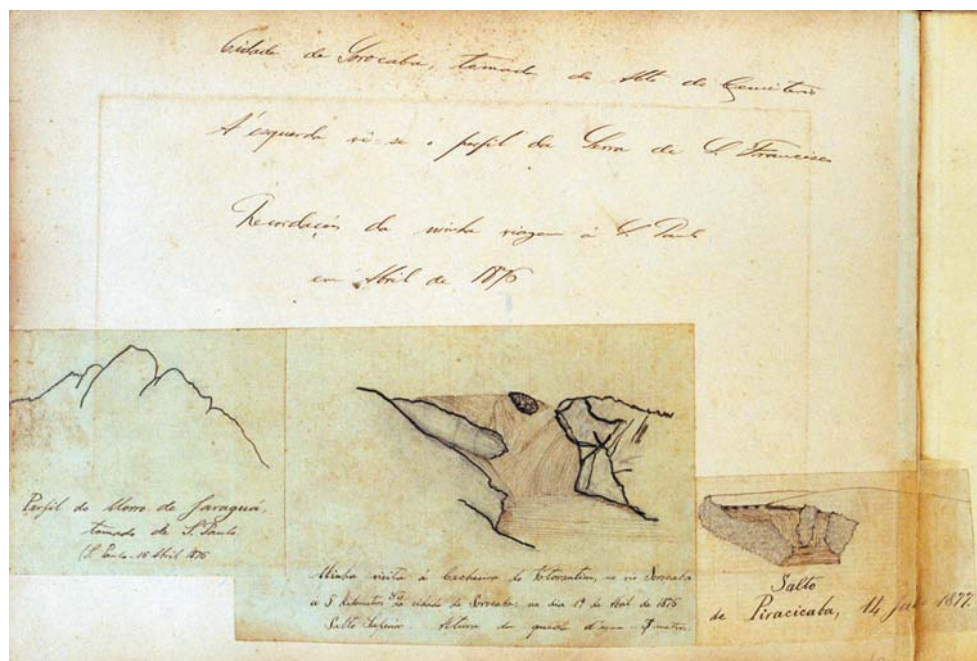 Cidade de Sorocaba, tomada do Alto do Cemiterio
Á esquerda vê-se o perfil da Serra de S. Francisco
Recordação da minha viagem á S. Paulo
em Abril de 1876
Perfil do Morro de Jaraguá,
tomado de S. Paulo
(S. Paulo - 16 Abril 1876
Minha visita á Cachoeira do Votorantim, no rio Sorocaba
a 5 kilometros da cidade de Sorocaba, no dia 19 de Abril de 1876
Salto Superior. Altura da queda d'agua - metros
Salto
de Piracicaba, 14 1877